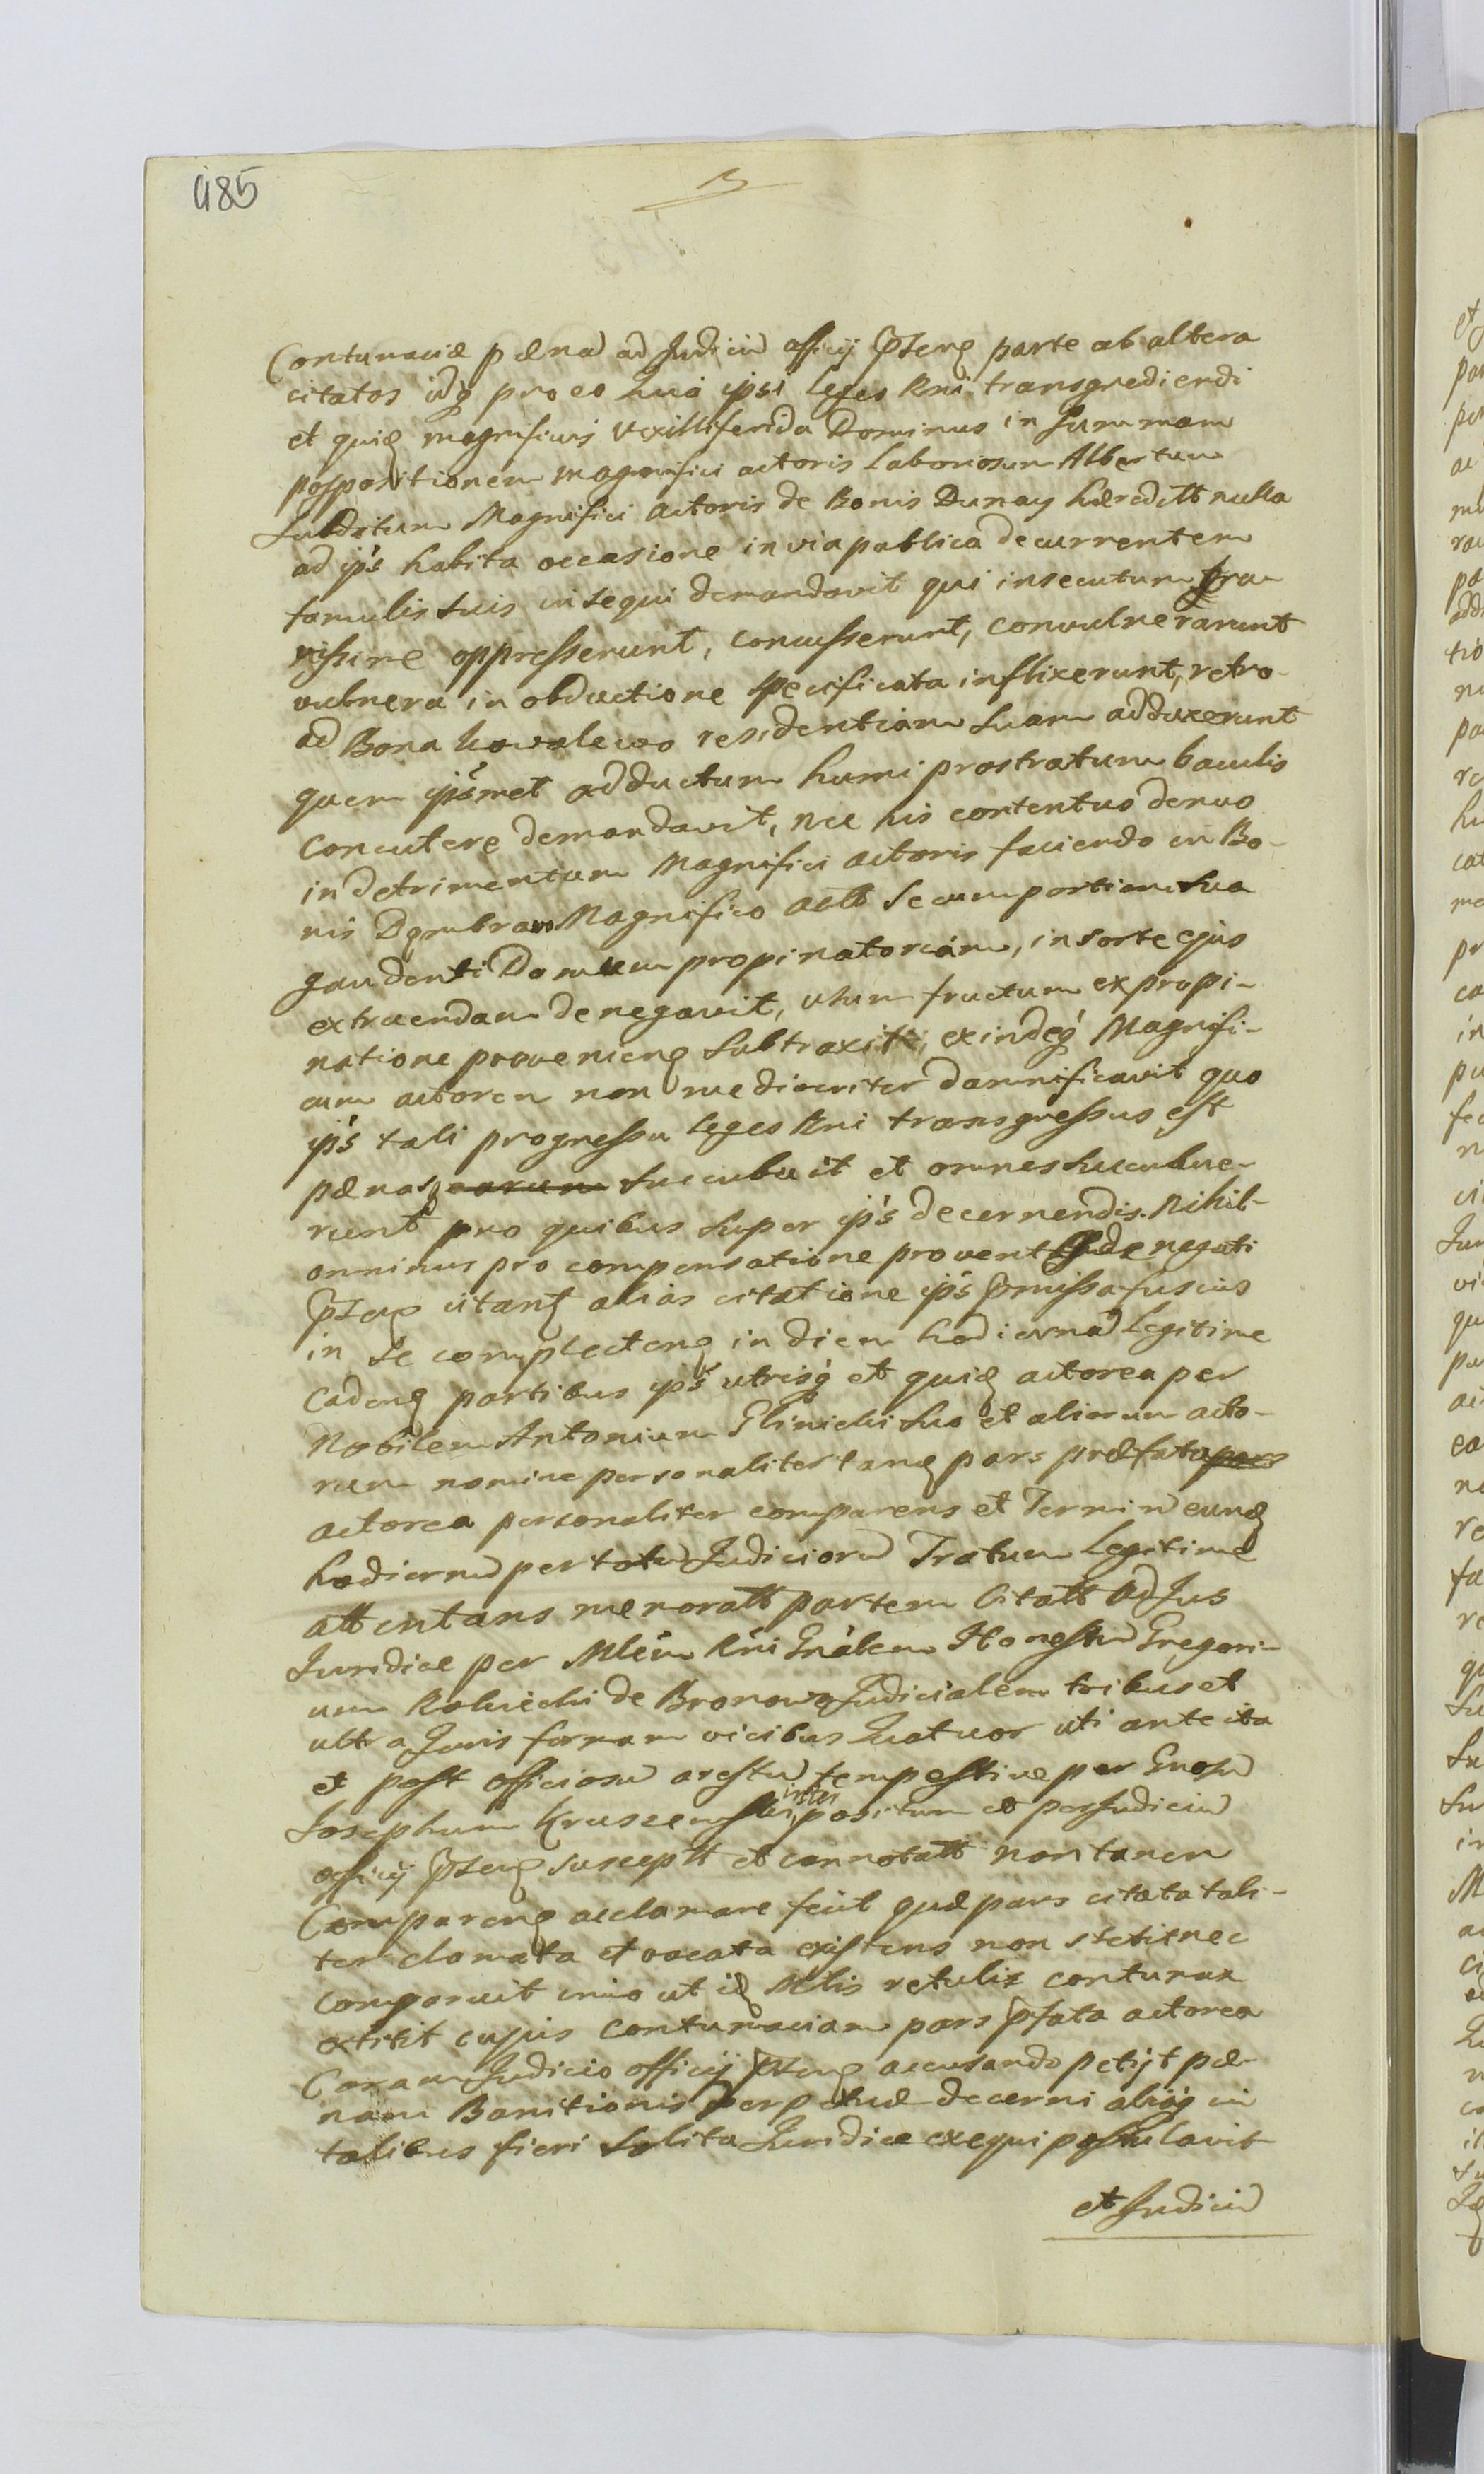 485
3
Contumaciæ pæna ad Judiciũ officij Pńteng parte ab altera
citatos idq pro eo Quia ipsi leges Rni transgrediendi
et quidẽ magnificus Vexilliferida Dominus in summam
pospositionem magnifici actoris laboriosum Albertum
Subditum Magnifici Actoris de Bonis Dunay hæreditt nulla
ad ips habita occasione in via publica decurrentem
famulis suis insequi demandavit qui insecutum gra-
vissime oppresserunt, concusserunt, convulnerarunt
vulnera in obductione specificata inflixerunt, retro
ad Bona Kowalewo residentiam suam adduxerunt
quem ipsmet adductum humi prostratum baculis
concutere demandavit, nec his contentus denuo
in detrimentum Magnifici actoris faciendo in Bo-
nis Dąmbrowo Magnifico actt secum portiom sua
gaudenti Domum propinatoriám, in sorte ejus
extruendam denegavit, usum fructum ex propi-
natione proveniens subtraxit, exindeq Magnifi-
cum actorem non mediocriter damnificavit quo
ips tali progressu leges Rni transgressus est
pænas earum succubuit et omnes succubue-
runt pro quibus super ips decernendis. Nihil-
ominus pro compensatione provent denegati
Pńteng citant alias citatione ips præmissa fusius
in se complecteng in diem hodiernã legitime
cadeng partibus ips utrisq et quidẽ actorea per
Nobilem Antonium Glinicki suo et aliorum acto-
rum nomine personaliter tanq pars præfata pars
actorea personaliter comparens et Terminũ eundẽ
hodiernũ per totũ Judiciorũ Tratum Legitime
attentans memoratt partem Citatt ad Jus
Juridice per Mlem Rni Gnalem Honestũ Gregori-
um Rolniecki de Bronowo Judicialem tribus et
ultra Juris formam vicibus Quatuor uti ante ita
et post officiosũ arestũ tempestive per Gnosũ
Josephum Kruszewski inter positum et per Judiciũ
officij Pńteng susceptt et connotatt non tamen
Compareng acclamare fecit quæ pars citata tali-
ter clamata et vocata existens non stetit nec
comparuit imo ut idẽ Mlis retulit contumax
extitit cujus contumaciam pars pfata actorea
Coram Judicio officij Pńteng accusando petijt pæ-
nam Banitionis perpetuæ decerni aliaq in
talibus fieri solita Juridice exequi postulavit
et Judiciũ